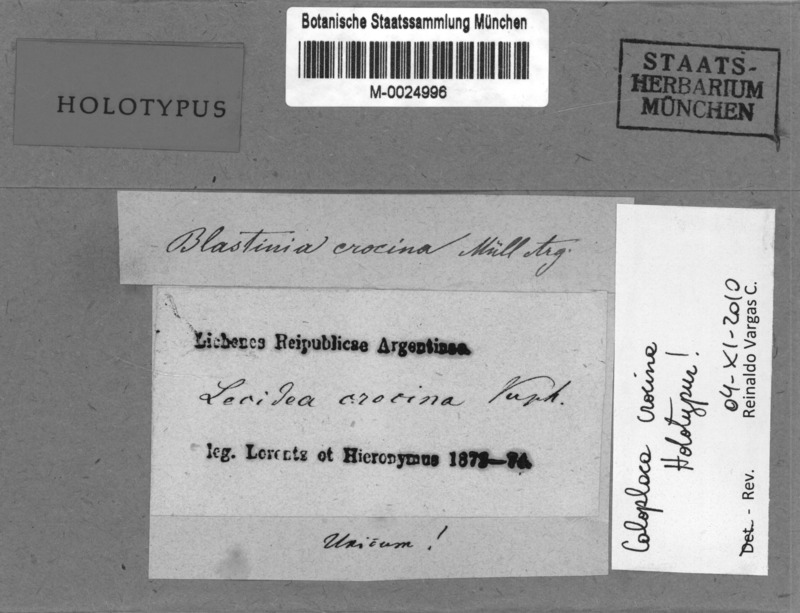 Botanische Staatssammlung München
M-0024996
HOLOTYPUS
STAATS-
HERBARIUM
MÜNCHEN
Blastinia crocina Müll Arg.
Lichenes Reipublicae Argentinae.
Lecidea crocina Krph.
leg. Lorentz et Hieronymus 1873—74.
Unicum!
Caloplaca crocina
Holotypus!
04-XI-2010
Det. - Rev. Reinaldo Vargas C.